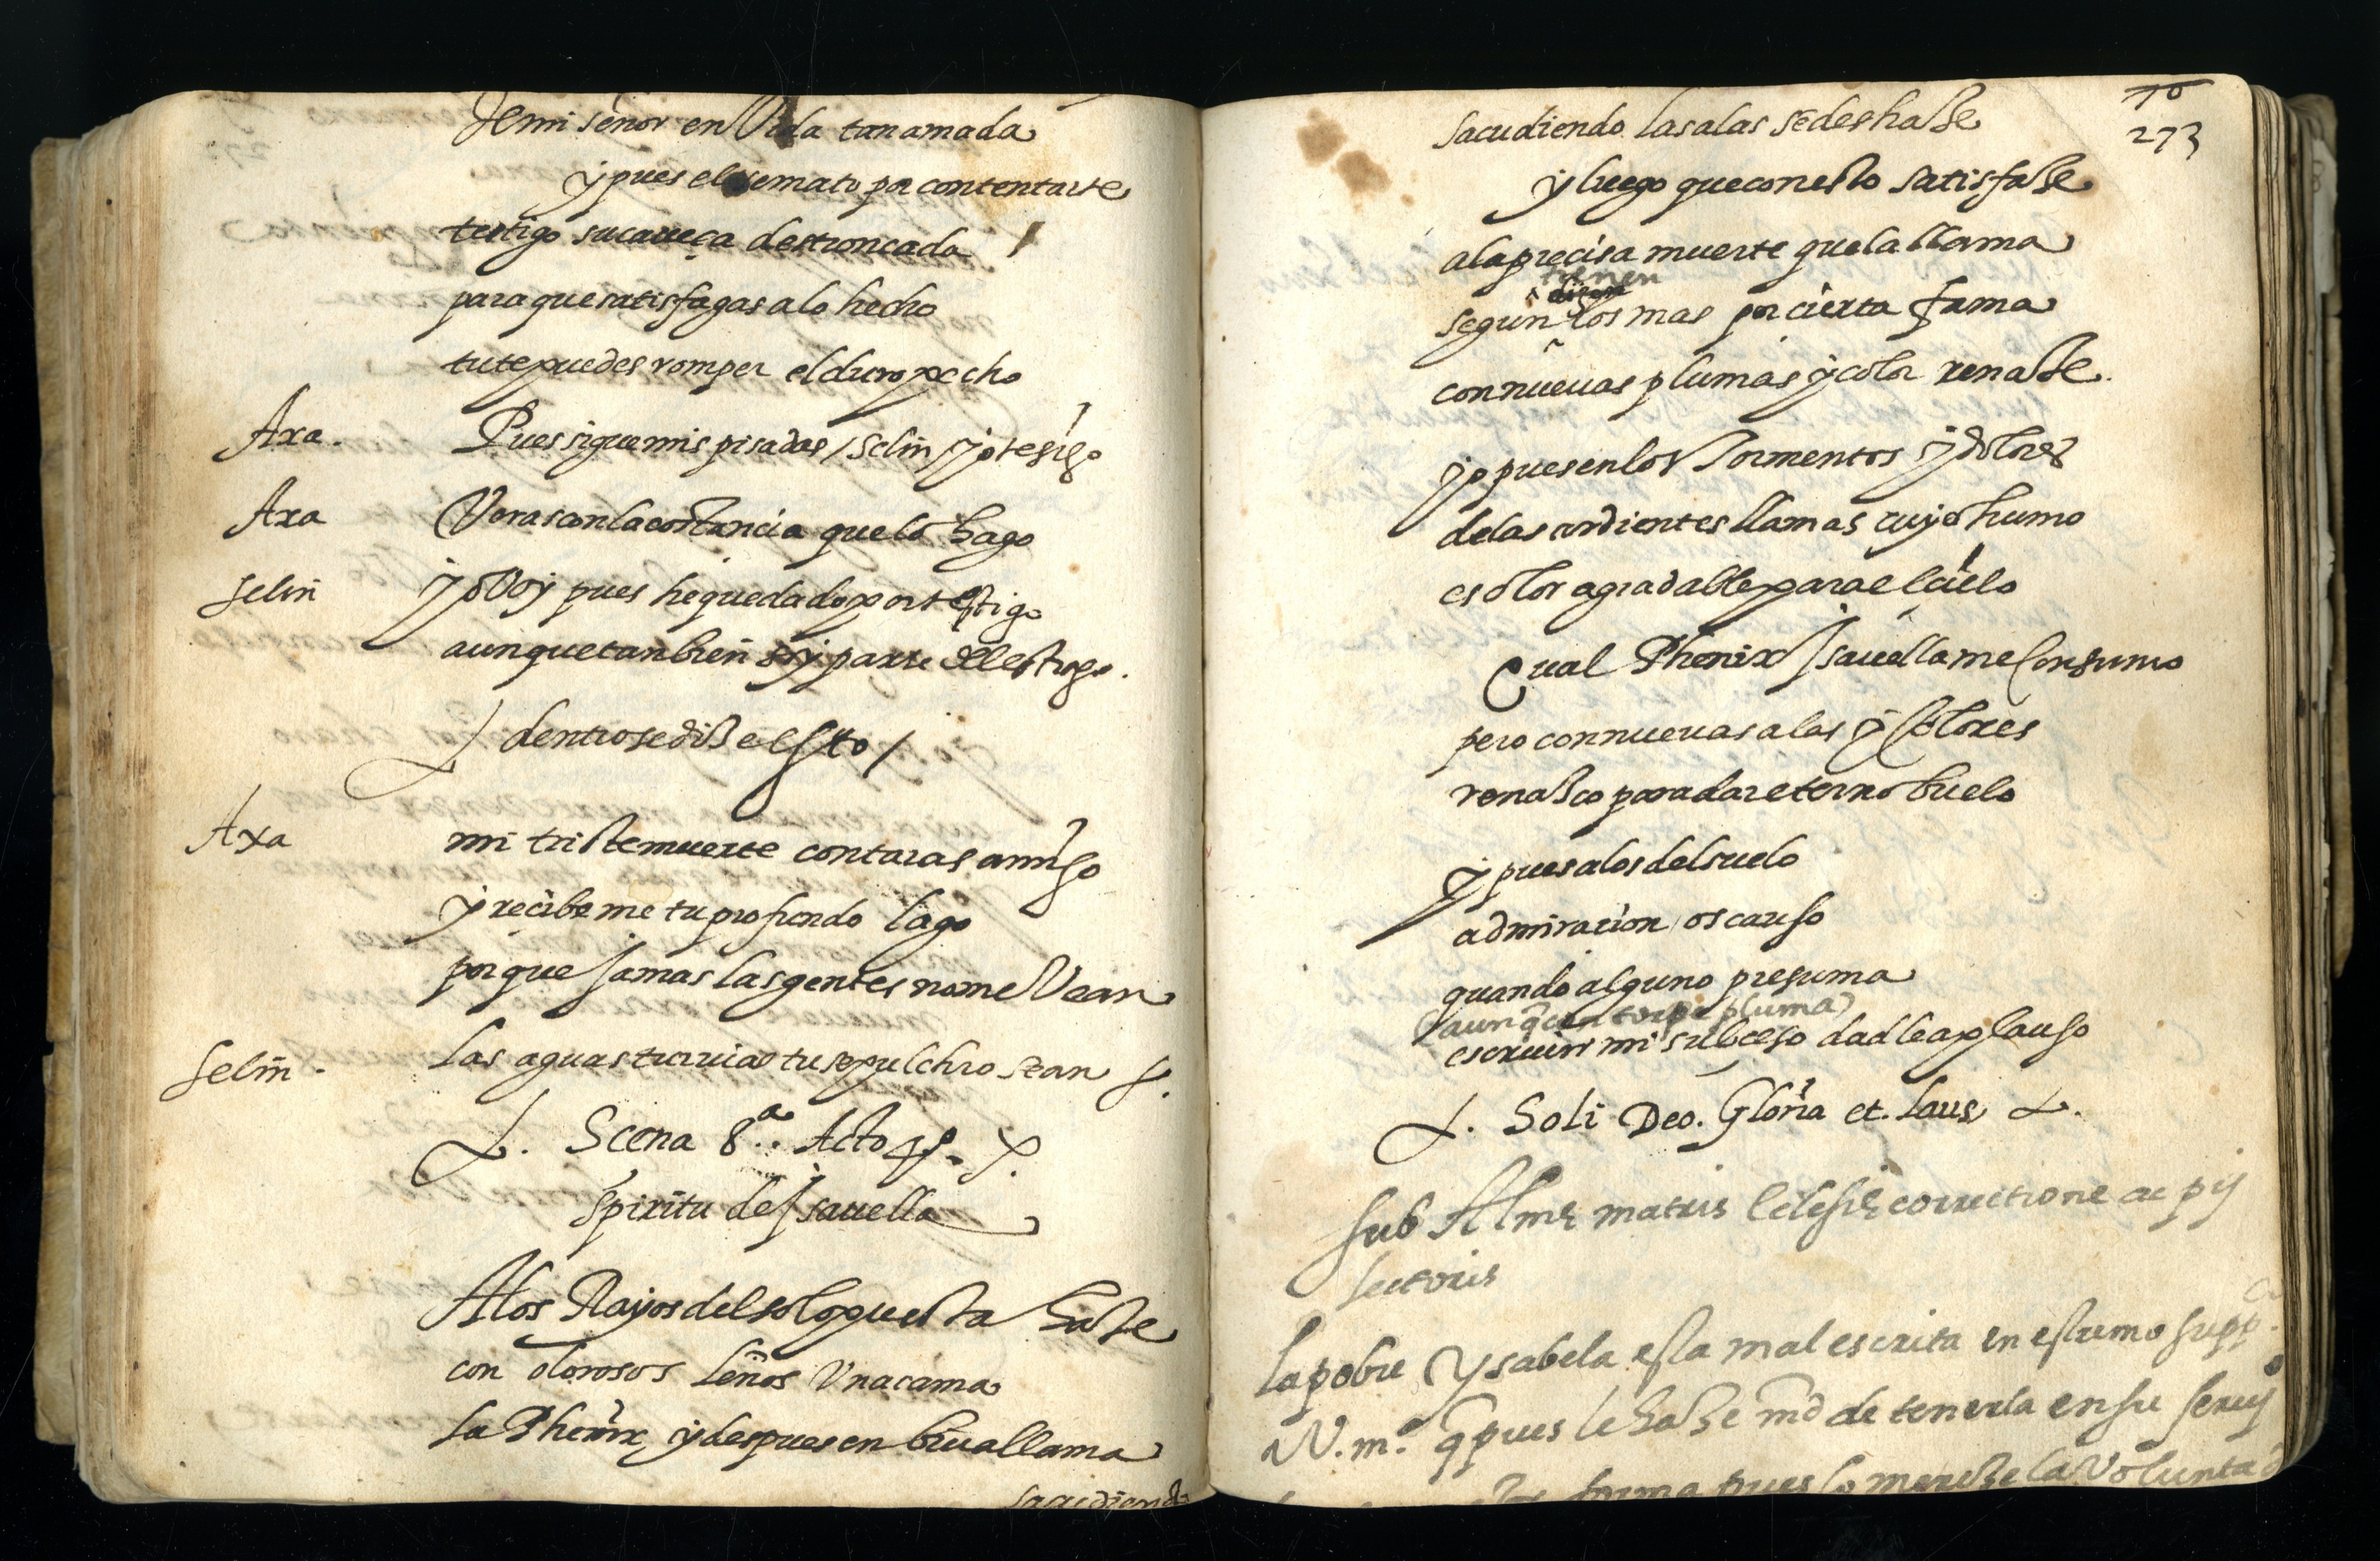 de mi señor en Vida tan amada
y pues el se mato por contentarte
testigo su caueça destroncada
para que satisfagas a lo hecho
tu te puedes romper el duro pecho
Axa. Pues sigue mis pisadas / Selin yo te sigo
Axa Veras con la costancia que lo hago
Selin yo Voy pues he quedado por testigo
aunque tanbien soy parte del estrago.
dentro se diße esto /
Axa mi triste muerte contaras amigo
y recibe me tu profundo lago
por que Jamas las gentes no me Vean
Selin. las aguas turuias tu sepulchro sean
Scena 8.ª Acto 4º.
Spiritu de Isauella
A los Rayos del sol opuesta haße
con olorosos leños Vna cama
la Phenix y despues en biua llama
sacudiendo
10
273
sacudiendo las alas se deshaße
y luego que con esto satisfaße
a la precisa muerte que la llama
tienen
segun los mas por cierta fama
con nueuas plumas y color renaße.
yo pues en los Tormentos y dolores
de las ardientes llamas cuyo humo
es olor agradable para el cielo
Qual Phenix Isauella me Consumo
pero con nueuas alas y Colores
renaßco para dar eterno buelo
y pues a los del suelo
admiracion os causo
quando alguno presuma
(aunq̃ con torpe pluma)
escriuir mi subceso dadle aplauso
Soli Deo. Gloria et. laus
sub Almę matris Eclesię correctione ac pij
lectoris
la pobre Ysabela esta mal escrita en estremo supp.ca
a V. m.d q̃ pues le haße md de tenerla en su serui
forma pues lo mereße la Voluntad